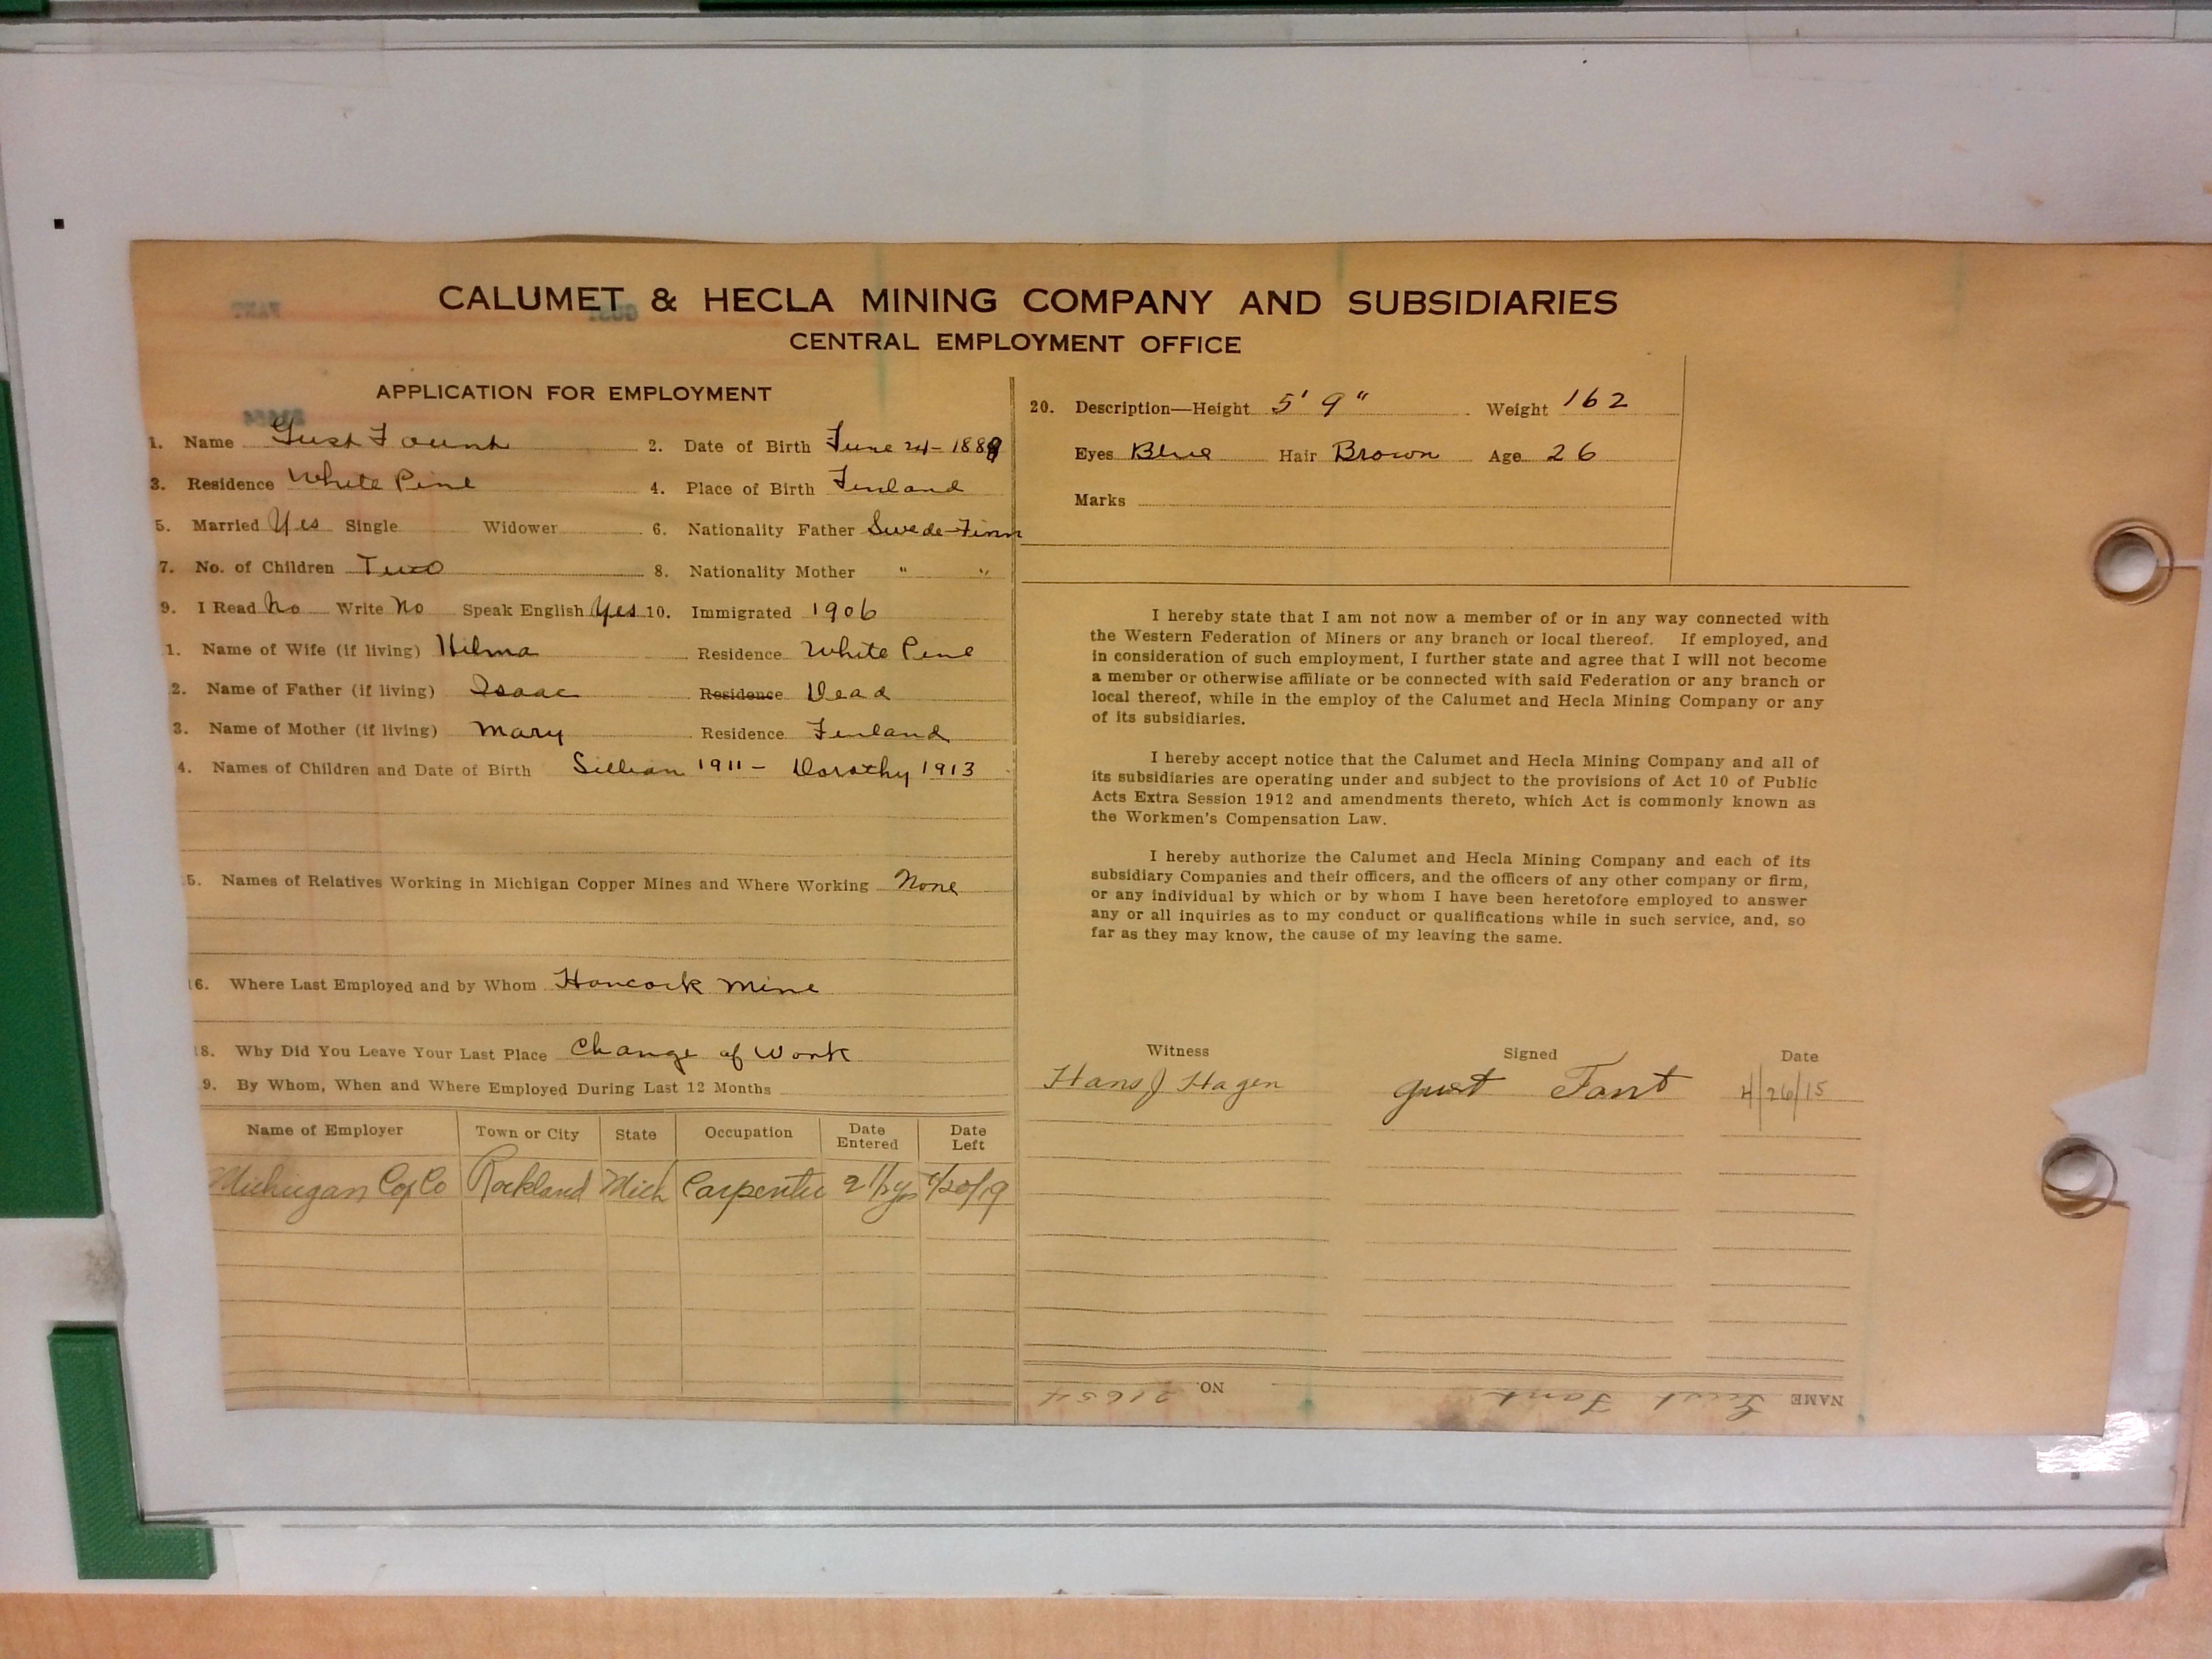 CALUMET & HECLA MINING COMPANY AND SUBSIDIARIES
CENTRAL EMPLOYMENT OFFICE
APPLICATION FOR EMPLOYMENT
1. Name Gust Faunt 2. Date of Birth June 24-1889
3. Residence White Pine 4. Place of Birth Finland
5. Married Yes Single Widower 6. Nationality Father Swede-Finn
7. No. of Children Two 8. Nationality Mother " "
9. I Read No Write No Speak English Yes 10. Immigrated 1906
1. Name of Wife (if living) Hilma Residence White Pine
2. Name of Father (if living) Isaac Residence Dead
3. Name of Mother (if living) Mary Residence Finland
4. Names of Children and Date of Birth Lillian 1911 - Dorothy 1913
5. Names of Relatives Working in Michigan Copper Mines and Where Working None
16. Where Last Employed and by Whom Hancock Mine
18. Why Did You Leave Your Last Place Change of Work
9. By Whom, When and Where Employed During Last 12 Months
Name of Employer Town or City State Occupation Date Entered Date Left
Michigan Cop Co Rockland Mich Carpenter 2 1/2 yrs
20. Description—Height 5' 9" Weight 162
Eyes Blue Hair Brown Age 26
Marks
I hereby state that I am not now a member of or in any way connected with
the Western Federation of Miners or any branch or local thereof. If employed, and
in consideration of such employment, I further state and agree that I will not become
a member or otherwise affiliate or be connected with said Federation or any branch or
local thereof, while in the employ of the Calumet and Hecla Mining Company or any
of its subsidiaries.
I hereby accept notice that the Calumet and Hecla Mining Company and all of
its subsidiaries are operating under and subject to the provisions of Act 10 of Public
Acts Extra Session 1912 and amendments thereto, which Act is commonly known as
the Workmen's Compensation Law.
I hereby authorize the Calumet and Hecla Mining Company and each of its
subsidiary Companies and their officers, and the officers of any other company or firm,
or any individual by which or by whom I have been heretofore employed to answer
any or all inquiries as to my conduct or qualifications while in such service, and, so
far as they may know, the cause of my leaving the same.
Witness Signed Date
Hans J Hagen gust Fant 4/26/15
NAME Gust Fant NO. 21654